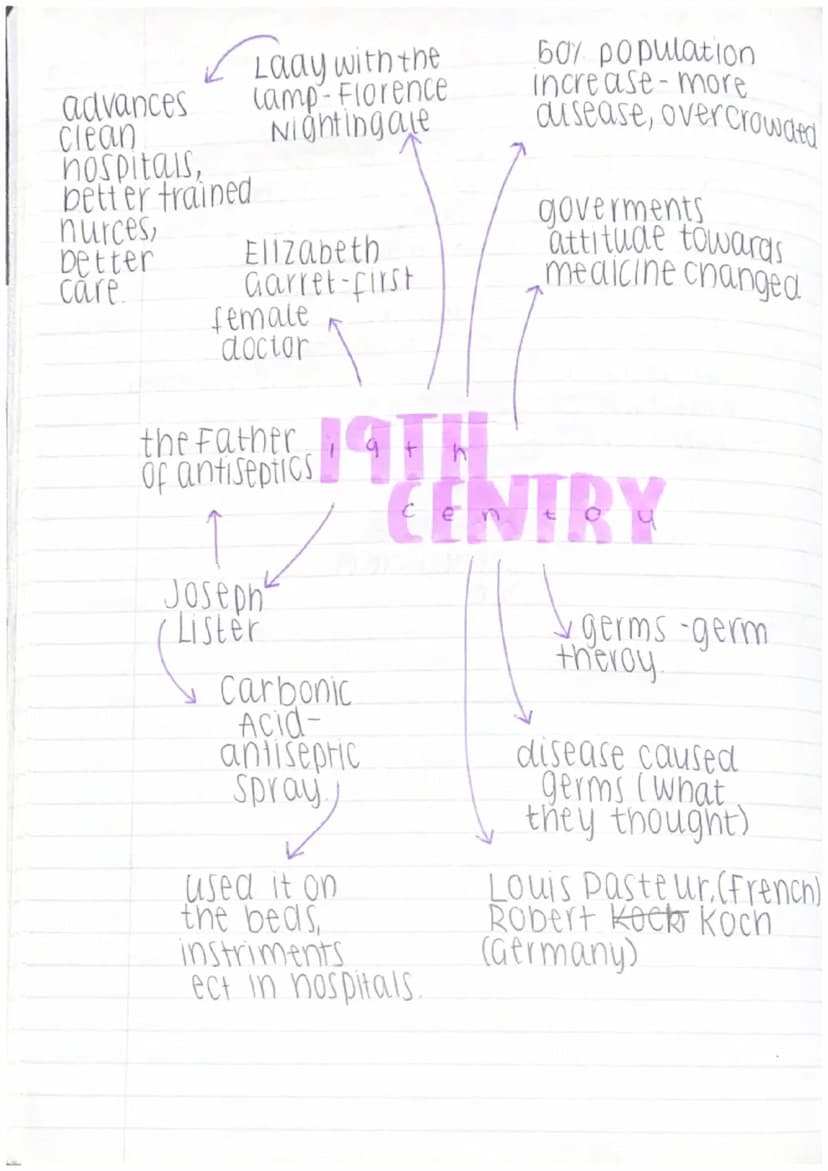 Lady with the
lamp - Florence
Nightingale
advances
clean
hospitals,
better trained
nurces,
better
care.
60% population
increase - more
disease, overcrowded
goverments
attitude towards
medicine changed
Elizabeth
Garret - first
female
doctor
19TH
19th
CENTRY
centoy
the Father
of antiseptics
Joseph
Lister
Carbonic
Acid -
antiseptic
spray.
used it on
the beds,
instriments
ect in hospitals.
germs - germ
theroy.
disease caused
germs (what
they thought)
Louis Pasteur, (French)
Robert Kock Koch
(Germany)